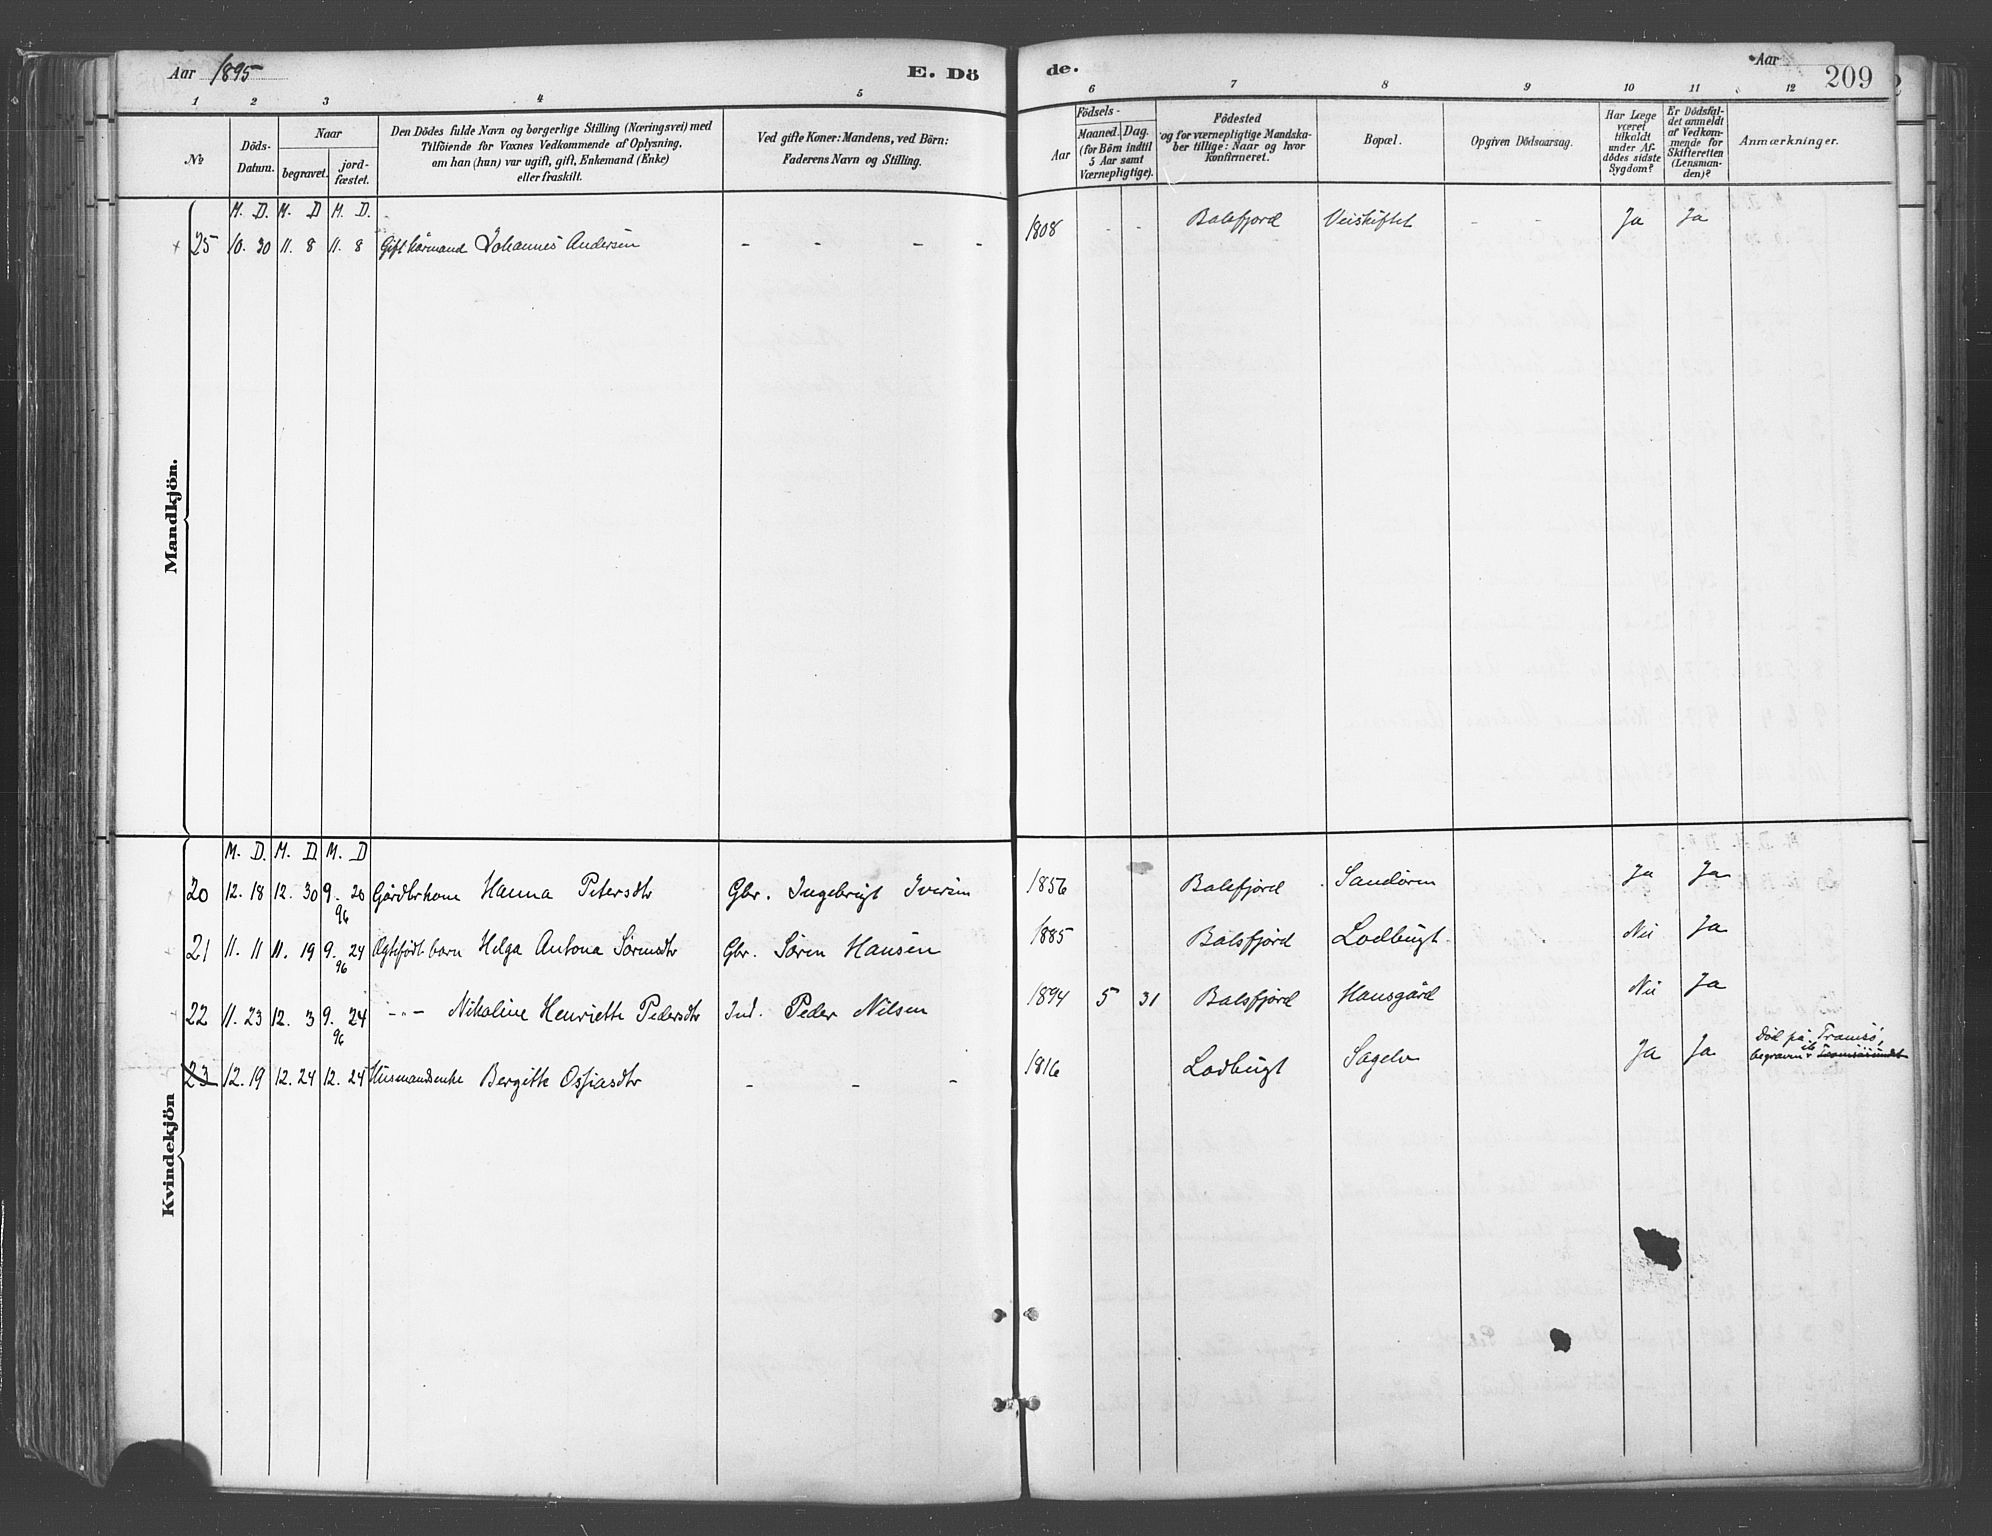 Aar 1895 E. Dö de. Aar 209
1 2 3 4 5 6 7 8 9 10 11 12
№
Döds-Datum.
Naar
begravet.
jord-fæstet.
Den Dödes fulde Navn og borgerlige Stilling (Næringsvei) med
Tilföiende for Voxnes Vedkommende af Oplysning,
om han (hun) var ugift, gift, Enkemand (Enke)
eller fraskilt.
Ved gifte Koner: Mandens, ved Börn:
Faderens Navn og Stilling.
Födsels-
Aar
Maaned. Dag.
(for Börn indtil
5 Aar samt
Værnepligtige).
Födested
og for værnepligtige Mandska-
ber tillige: Naar og hvor
konfirmeret.
Bopæl.
Opgiven Dödsaarsag.
Har Læge
været
tilkaldt
under Af-
dödes sidste
Sygdom?
Er Dödsfal-
det anmeldt
af Vedkom-
mende for
Skifteretten
(Lensman-
den)?
Anmærkninger.
Mandkjön.
M. D. M. D M. D.
25 10. 30 11. 8 11. 8 Gift kårmand Johannes Andersen - - - - 1808 - - Balsfjord Veiskiftet - - Ja Ja
Kvindekjön
M. D. M. D M. D
20 12. 18 12. 30 9. 20 96 Gårdbrkone Hanna Petersdtr Gbr. Ingebrigt Iversen 1856 Balsfjord Sandøren Ja Ja
21 11. 11 11. 19 9. 24 96 Ægtefødt barn Helga Antona Sørensdtr Gbr. Søren Hansen 1885 Balsfjord Lodbugt Nei Ja
22 11. 23 12. 3 9. 24 96 -"- Nikoline Henriette Pedersdtr Ind. Peder Nilsen 1894 5 31 Balsfjord Hansgård Nei Ja
23 12. 19 12. 24 12. 24 Husmandsenke Bergitte Ossiasdtr - - - 1816 Lodbugt Sagelv Ja Ja Död på Tromsö, begraven Tromsösundet